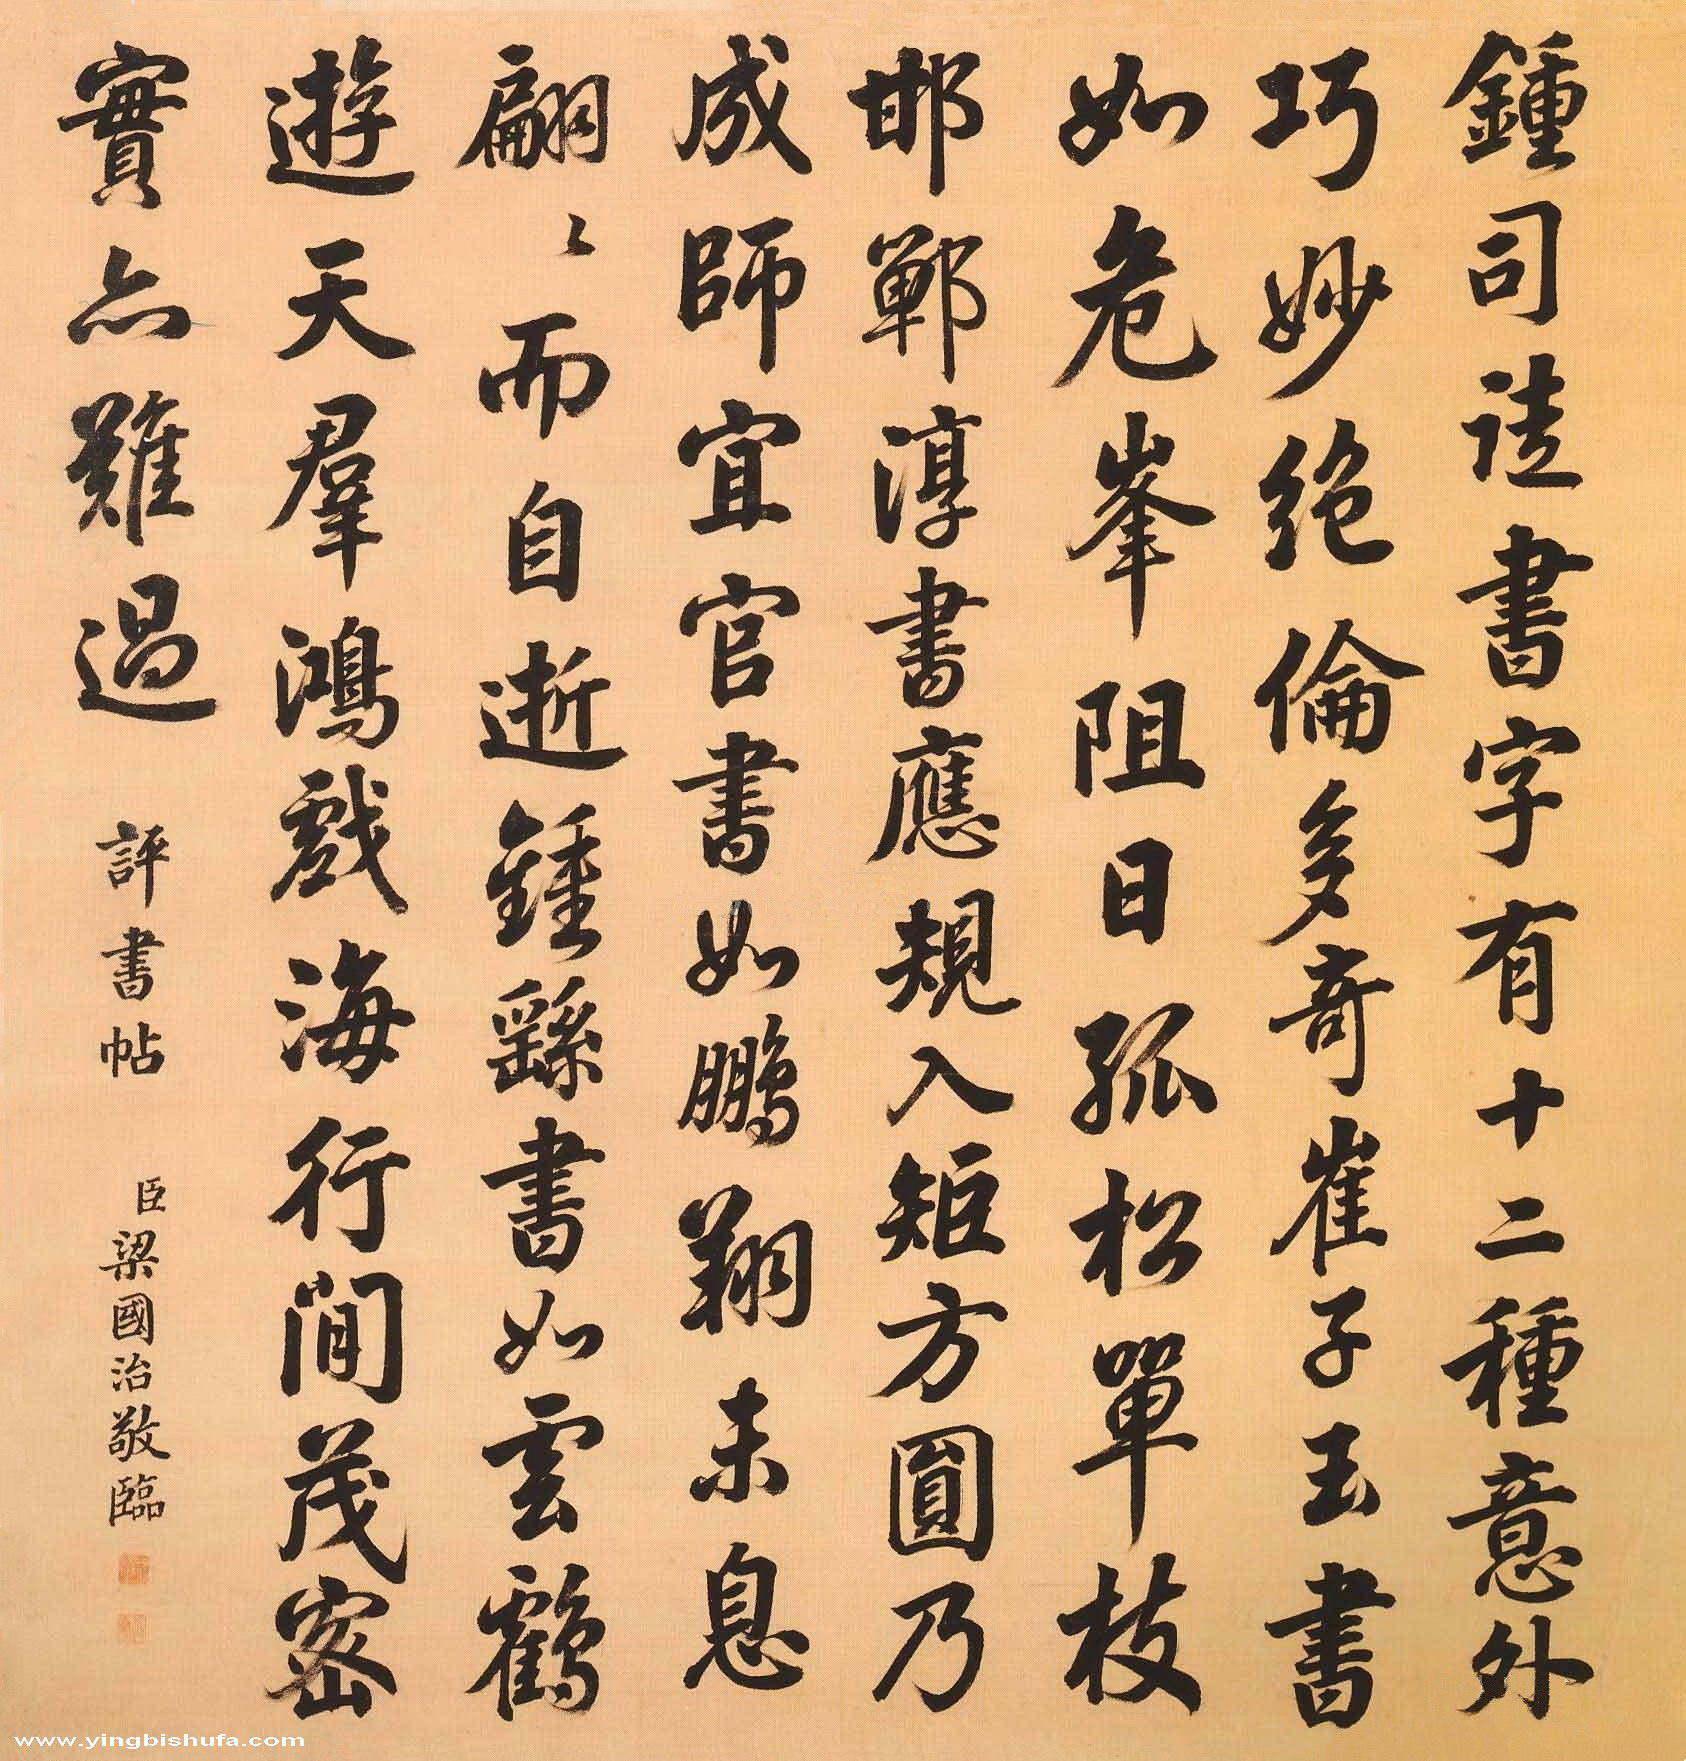 鍾司徒書字有十二種意外
巧妙絶倫多奇崔子玉書
如危峯阻日孤松單枝
邯鄲淳書應規入矩方圓乃
成師宜官書如鵬翔未息
翩〻而自逝鍾繇書如雲鶴
遊天羣鴻戯海行間茂密
實亦難過
評書帖
臣梁國治敬臨
www.yingbishufa.com